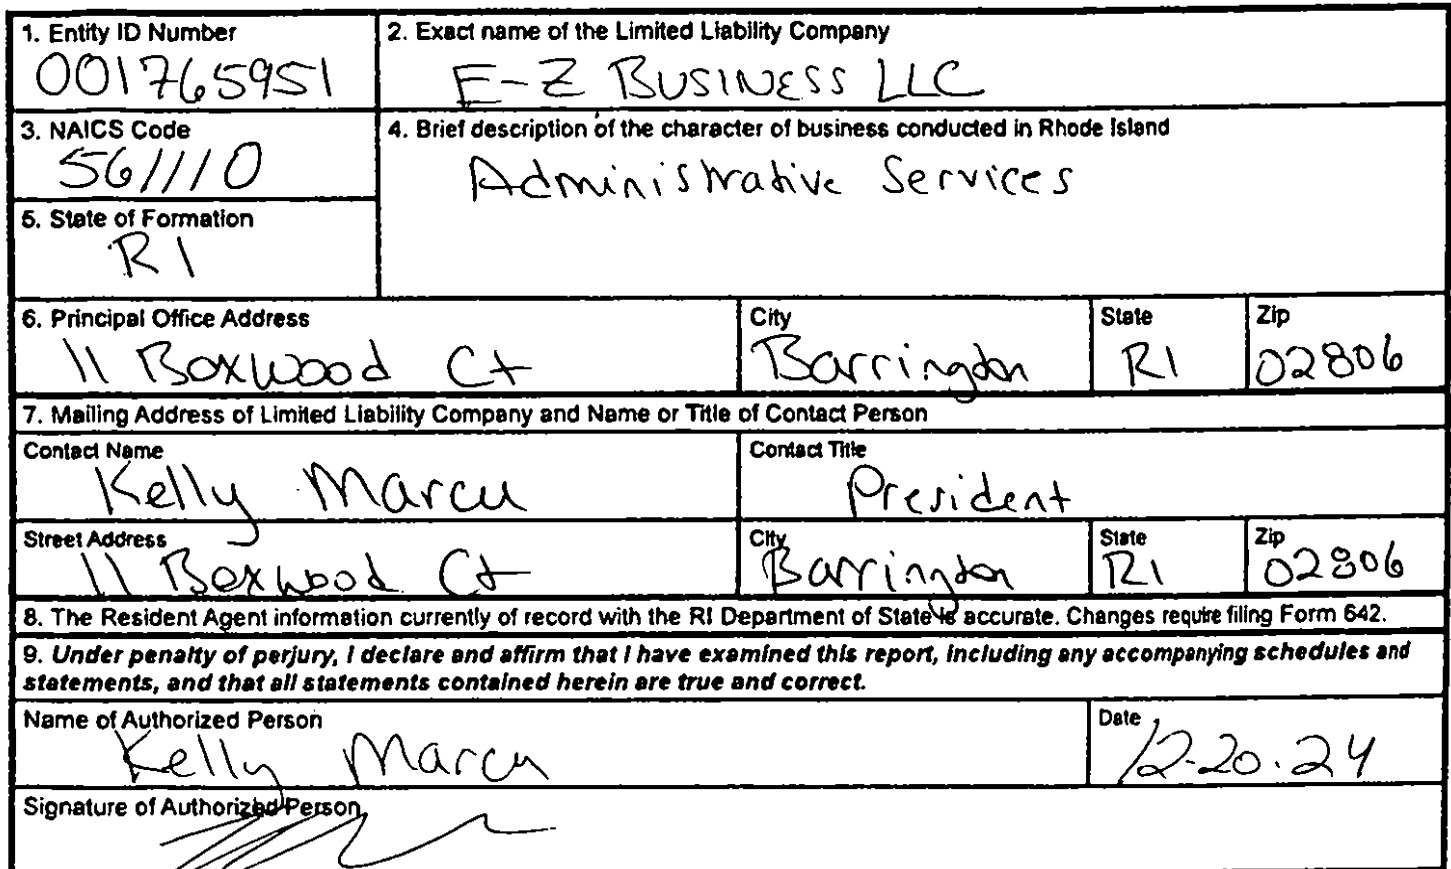 1. Entity ID Number
001765951
2. Exact name of the Limited Liability Company
E-Z BUSINESS LLC
3. NAICS Code
561110
4. Brief description of the character of business conducted in Rhode Island
Administrative Services
5. State of Formation
RI
6. Principal Office Address
11 Boxwood Ct
City
Barrington
State
RI
Zip
02806
7. Mailing Address of Limited Liability Company and Name or Title of Contact Person
Contact Name
Kelly Marcu
Contact Title
President
Street Address
11 Boxwood Ct
City
Barrington
State
RI
Zip
02806
8. The Resident Agent information currently of record with the RI Department of State is accurate. Changes require filing Form 642.
9. Under penalty of perjury, I declare and affirm that I have examined this report, including any accompanying schedules and
statements, and that all statements contained herein are true and correct.
Name of Authorized Person
Kelly Marcu
Date
12-20.24
Signature of Authorized Person